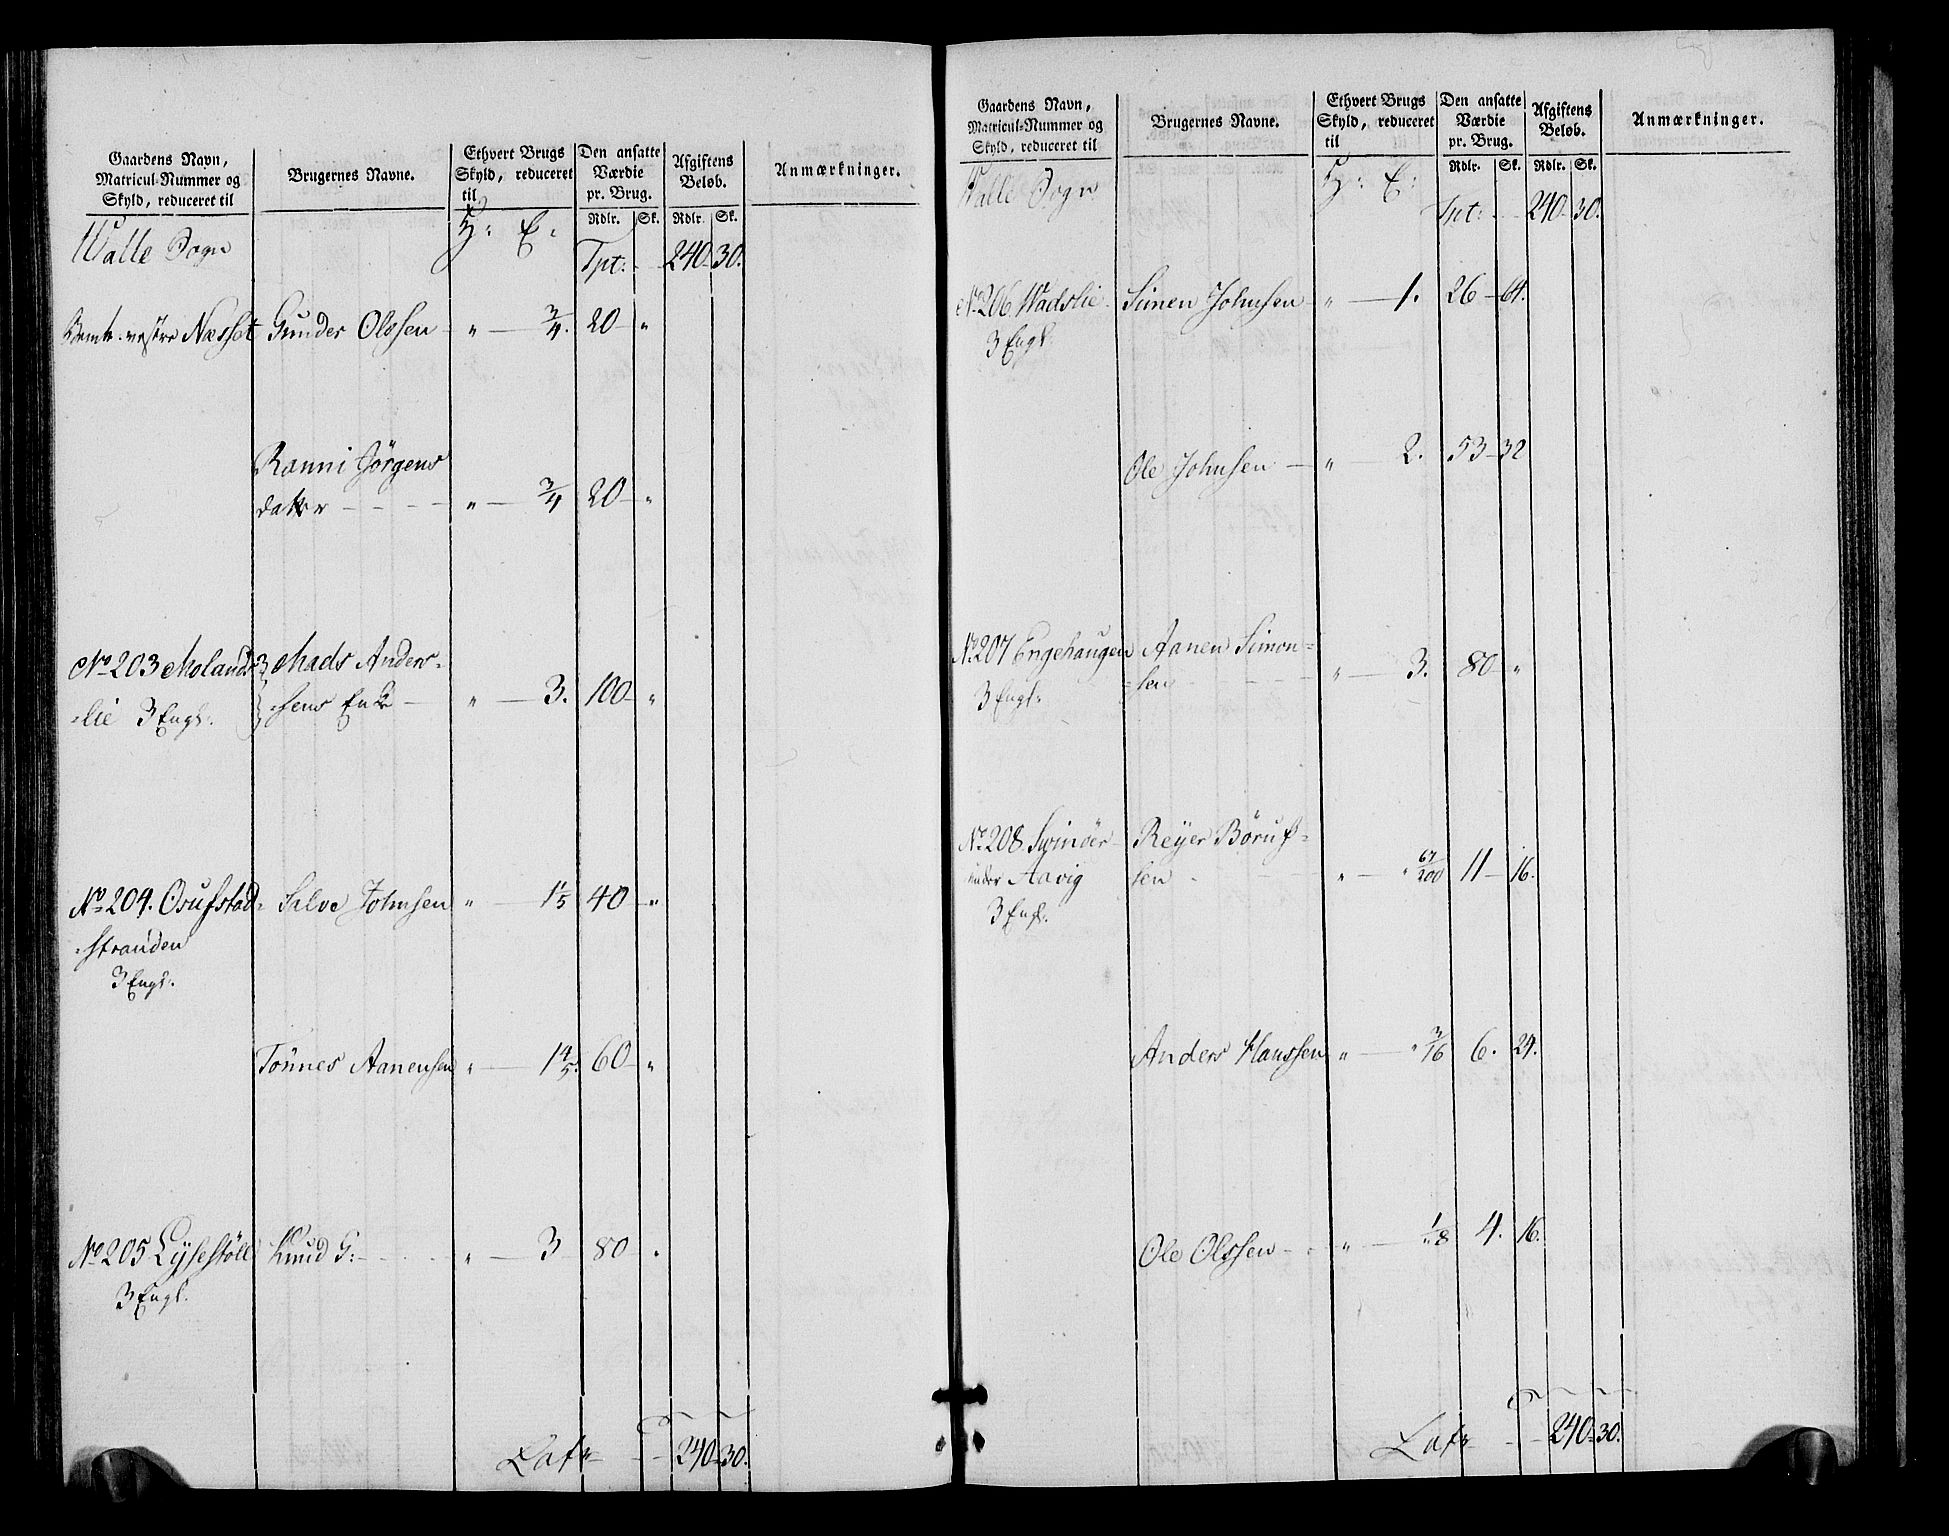 Gaardens Navn, Matricul-Nummer og Skyld, reduceret til
Brugernes Navne.
Ethvert Brugs Skyld, reduceret til
Den ansatte Værdie pr. Brug.
Afgiftens Beløb.
Anmærkninger.
Rdlr. Sk. Rdlr. Sk.
Walle Sogn H: E: Tpt: 240 30.
vestre Nesset Gunder Olssen " 3/4. 20 "
Ranni Jörgens
datter " 3/4 20 "
No 203 Molands Mads Anders=
=lie 3 Engl. =sens Enke " 3. 100 "
No 204. Osufstad= Salve Johnsen " 1 1/5 40 "
=stranden
3 Engl.
Tönnes Aanensen " 1 4/5. 60 "
No 205 Lysestöll Knud G: " 3 80 "
3 Engl.
Lats 240 30.
Gaardens Navn, Matricul-Nummer og Skyld, reduceret til
Brugernes Navne.
Ethvert Brugs Skyld, reduceret til
Den ansatte Værdie pr. Brug.
Afgiftens Beløb.
Anmærkninger.
Rdlr. Sk. Rdlr. Sk.
Walle Sogn H: E: Tpt: 240 30.
No 206 Wadslie Simen Johnsen " 1. 26 64.
3 Engl.
Ole Johnsen " 2. 53 32
No 207 Engehaugen Aanen Simon=
3 Engl. =sen " 3. 80 "
No 208 Svinöer Reyer Böruf=
under Aavig sen " " 67/200 11 16.
3 Engl.
Anders Hanssen " " 3/16 6. 24.
Ole Olssen " 1/8 4. 16.
Lats 240 30.